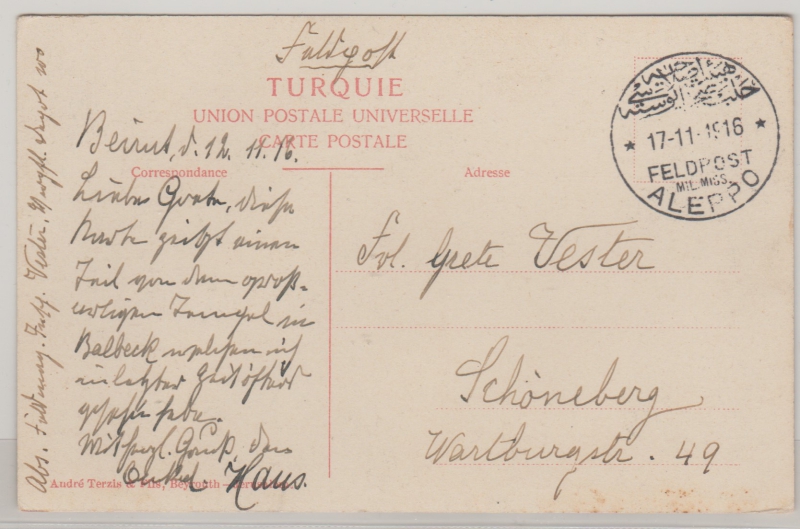 Feldpost
TURQUIE
UNION POSTALE UNIVERSELLE
CARTE POSTALE
Beirut, d. 12. 11. 16.
Correspondance
Adresse
17-11-1916
FELDPOST
MIL. MISS.
ALEPPO
Liebe Grete, diese
Karte zeigt einen
Teil von dem groß-
artigen Tempel in
Balbeck welchen ich
in letzter Zeit öfters
gesehen habe.
Mit herzl. Gruß, dein
Onkel Hans.
Frl. Grete Vester
Schöneberg
Wartburgstr. 49
André Terzis & Fils, Beyrouth
Vester,